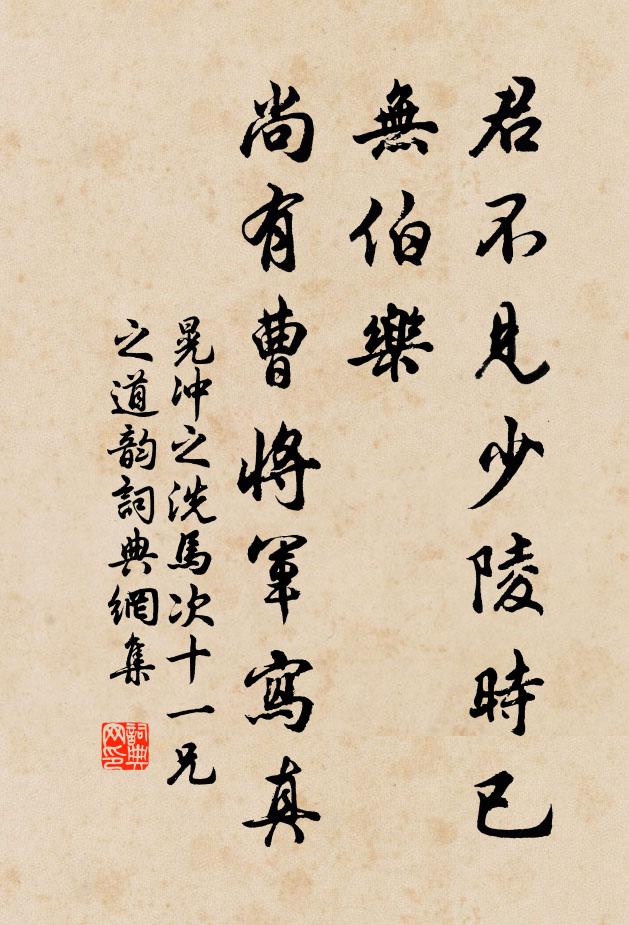 君不見少陵時已
無伯樂
尚有曹將軍寫真
晁冲之洗馬次十一兄
之道韵詞典網集
詞典网印